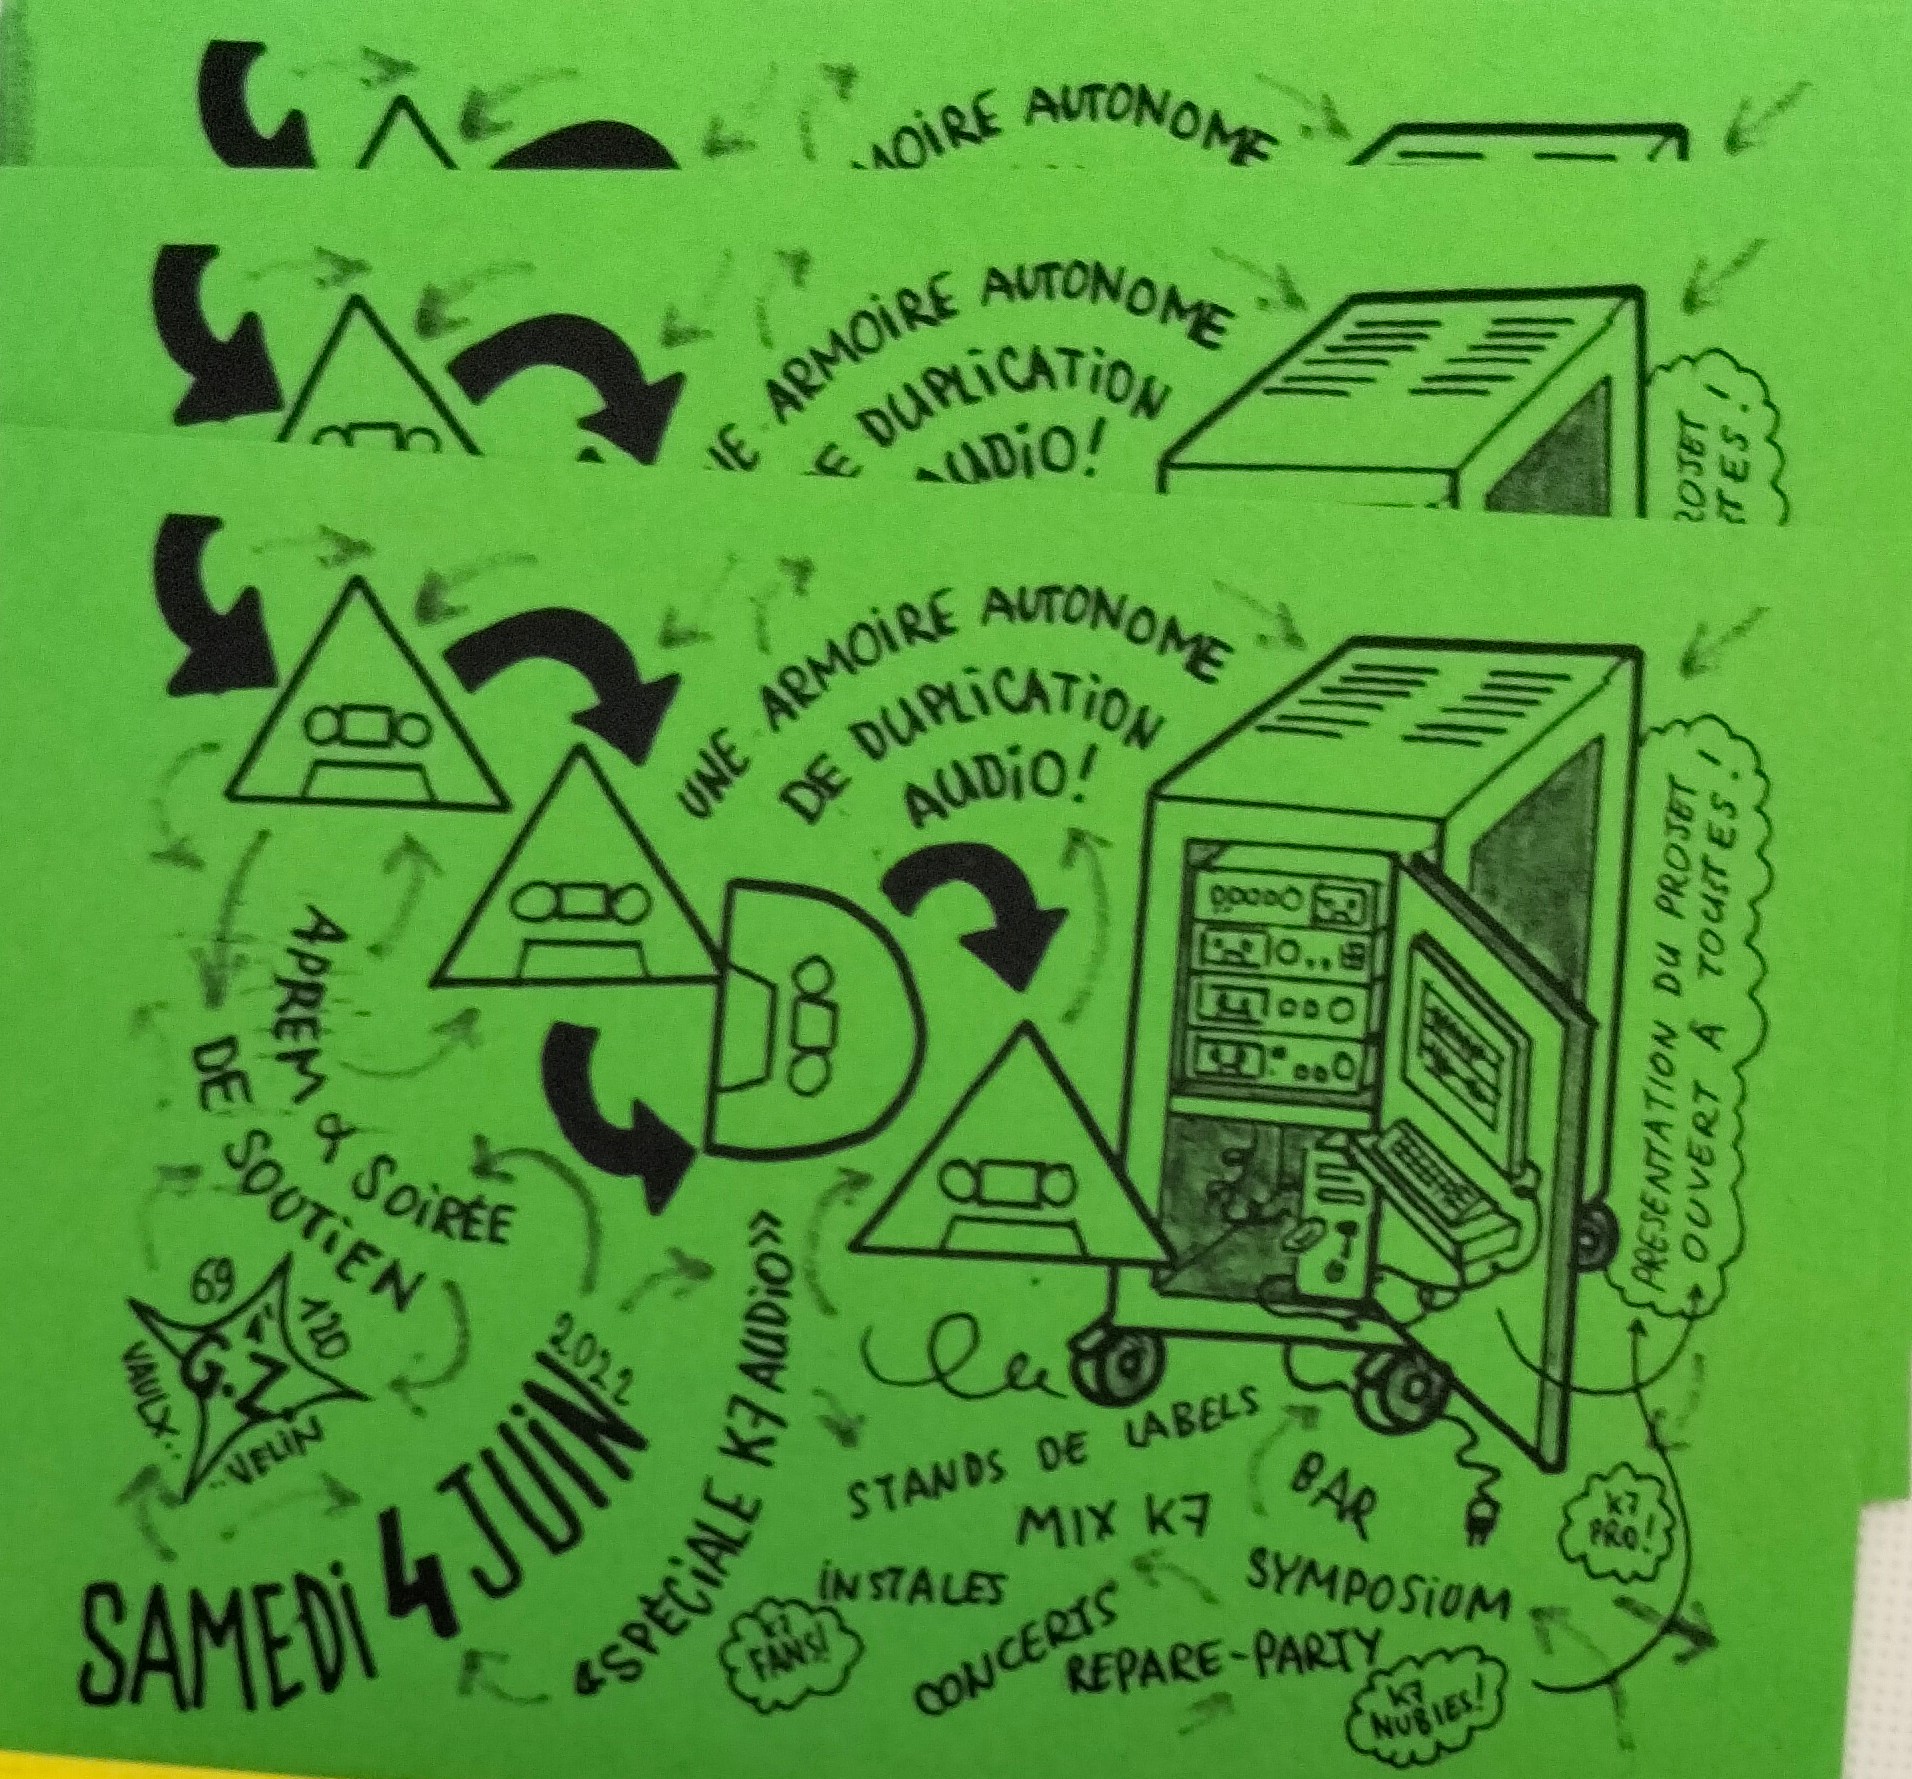 MOIRE AUTONOME
ARMOIRE AUTONOME
DUPLICATION
AUDIO!
OJET
TES!
UNE ARMOIRE AUTONOME
DE DUPLICATION
AUDIO!
PRESENTATION DU PROJET
OUVERT À TOUSTES!
APREM & SOIRÉE
DE SOUTIEN
69
120
G.Z
VAULX..
..VELIN
SAMEDI 4 JUIN 2022
«SPÉCIALE K7 AUDIO»
STANDS DE LABELS
BAR
MIX K7
K7
PRO!
INSTALES
SYMPOSIUM
K7
FANS!
CONCERTS
REPARE-PARTY
K7
NUBIES!